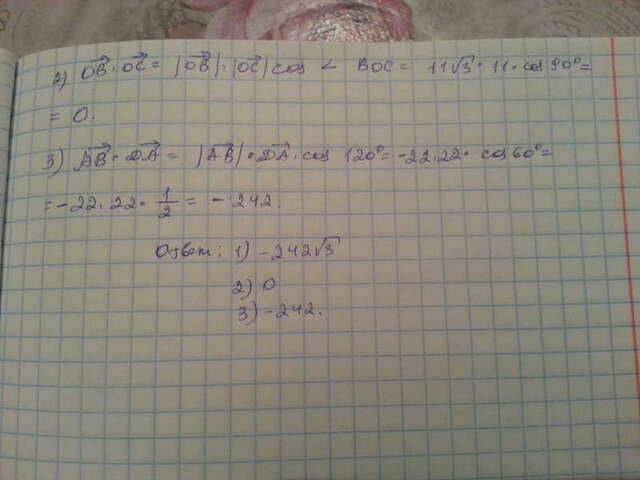 2) OB·OC = |OB|·|OC| cos ∠ BOC = 11√3·11·cos 90°=
= 0.
3) AB·DA = |AB|·DA·cos 120°=-22.22· cos60°=
=-22.22·1/2 = -242.
Ответ: 1) -242√3
2) 0
3) -242.